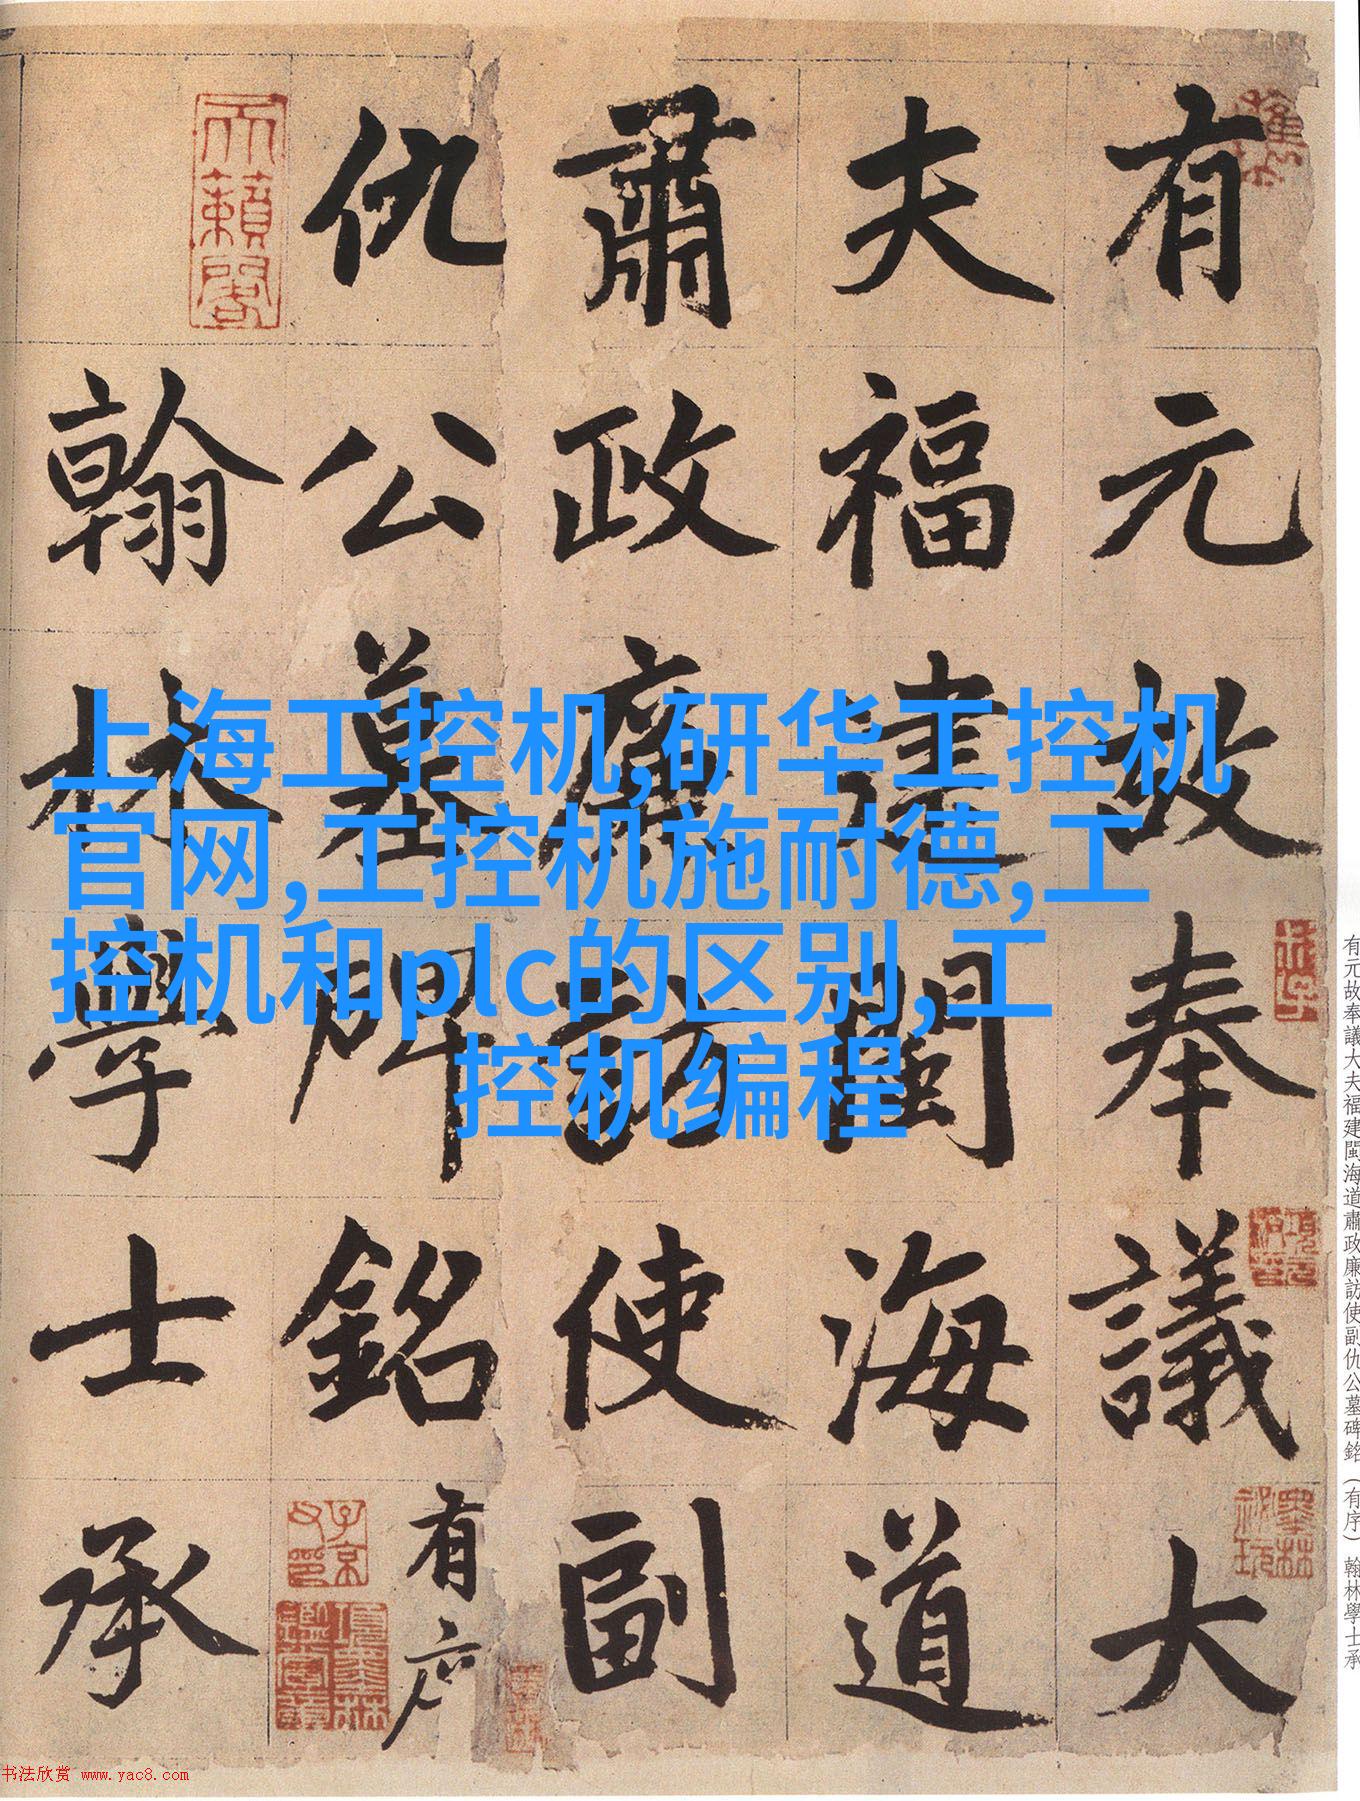 有元故奉議大
夫福建閩海道
肅政廉訪使副
仇公墓碑銘有序
翰林學士承
天籟閣
子京父印
上海工控机,研华工控机
官网,工控机施耐德,工
控机和plc的区别,工
控机编程
有元故奉議大夫福建閩海道肅政廉訪使副仇公墓碑銘(有序) 翰林學士承
书法欣赏 www.yac8.com